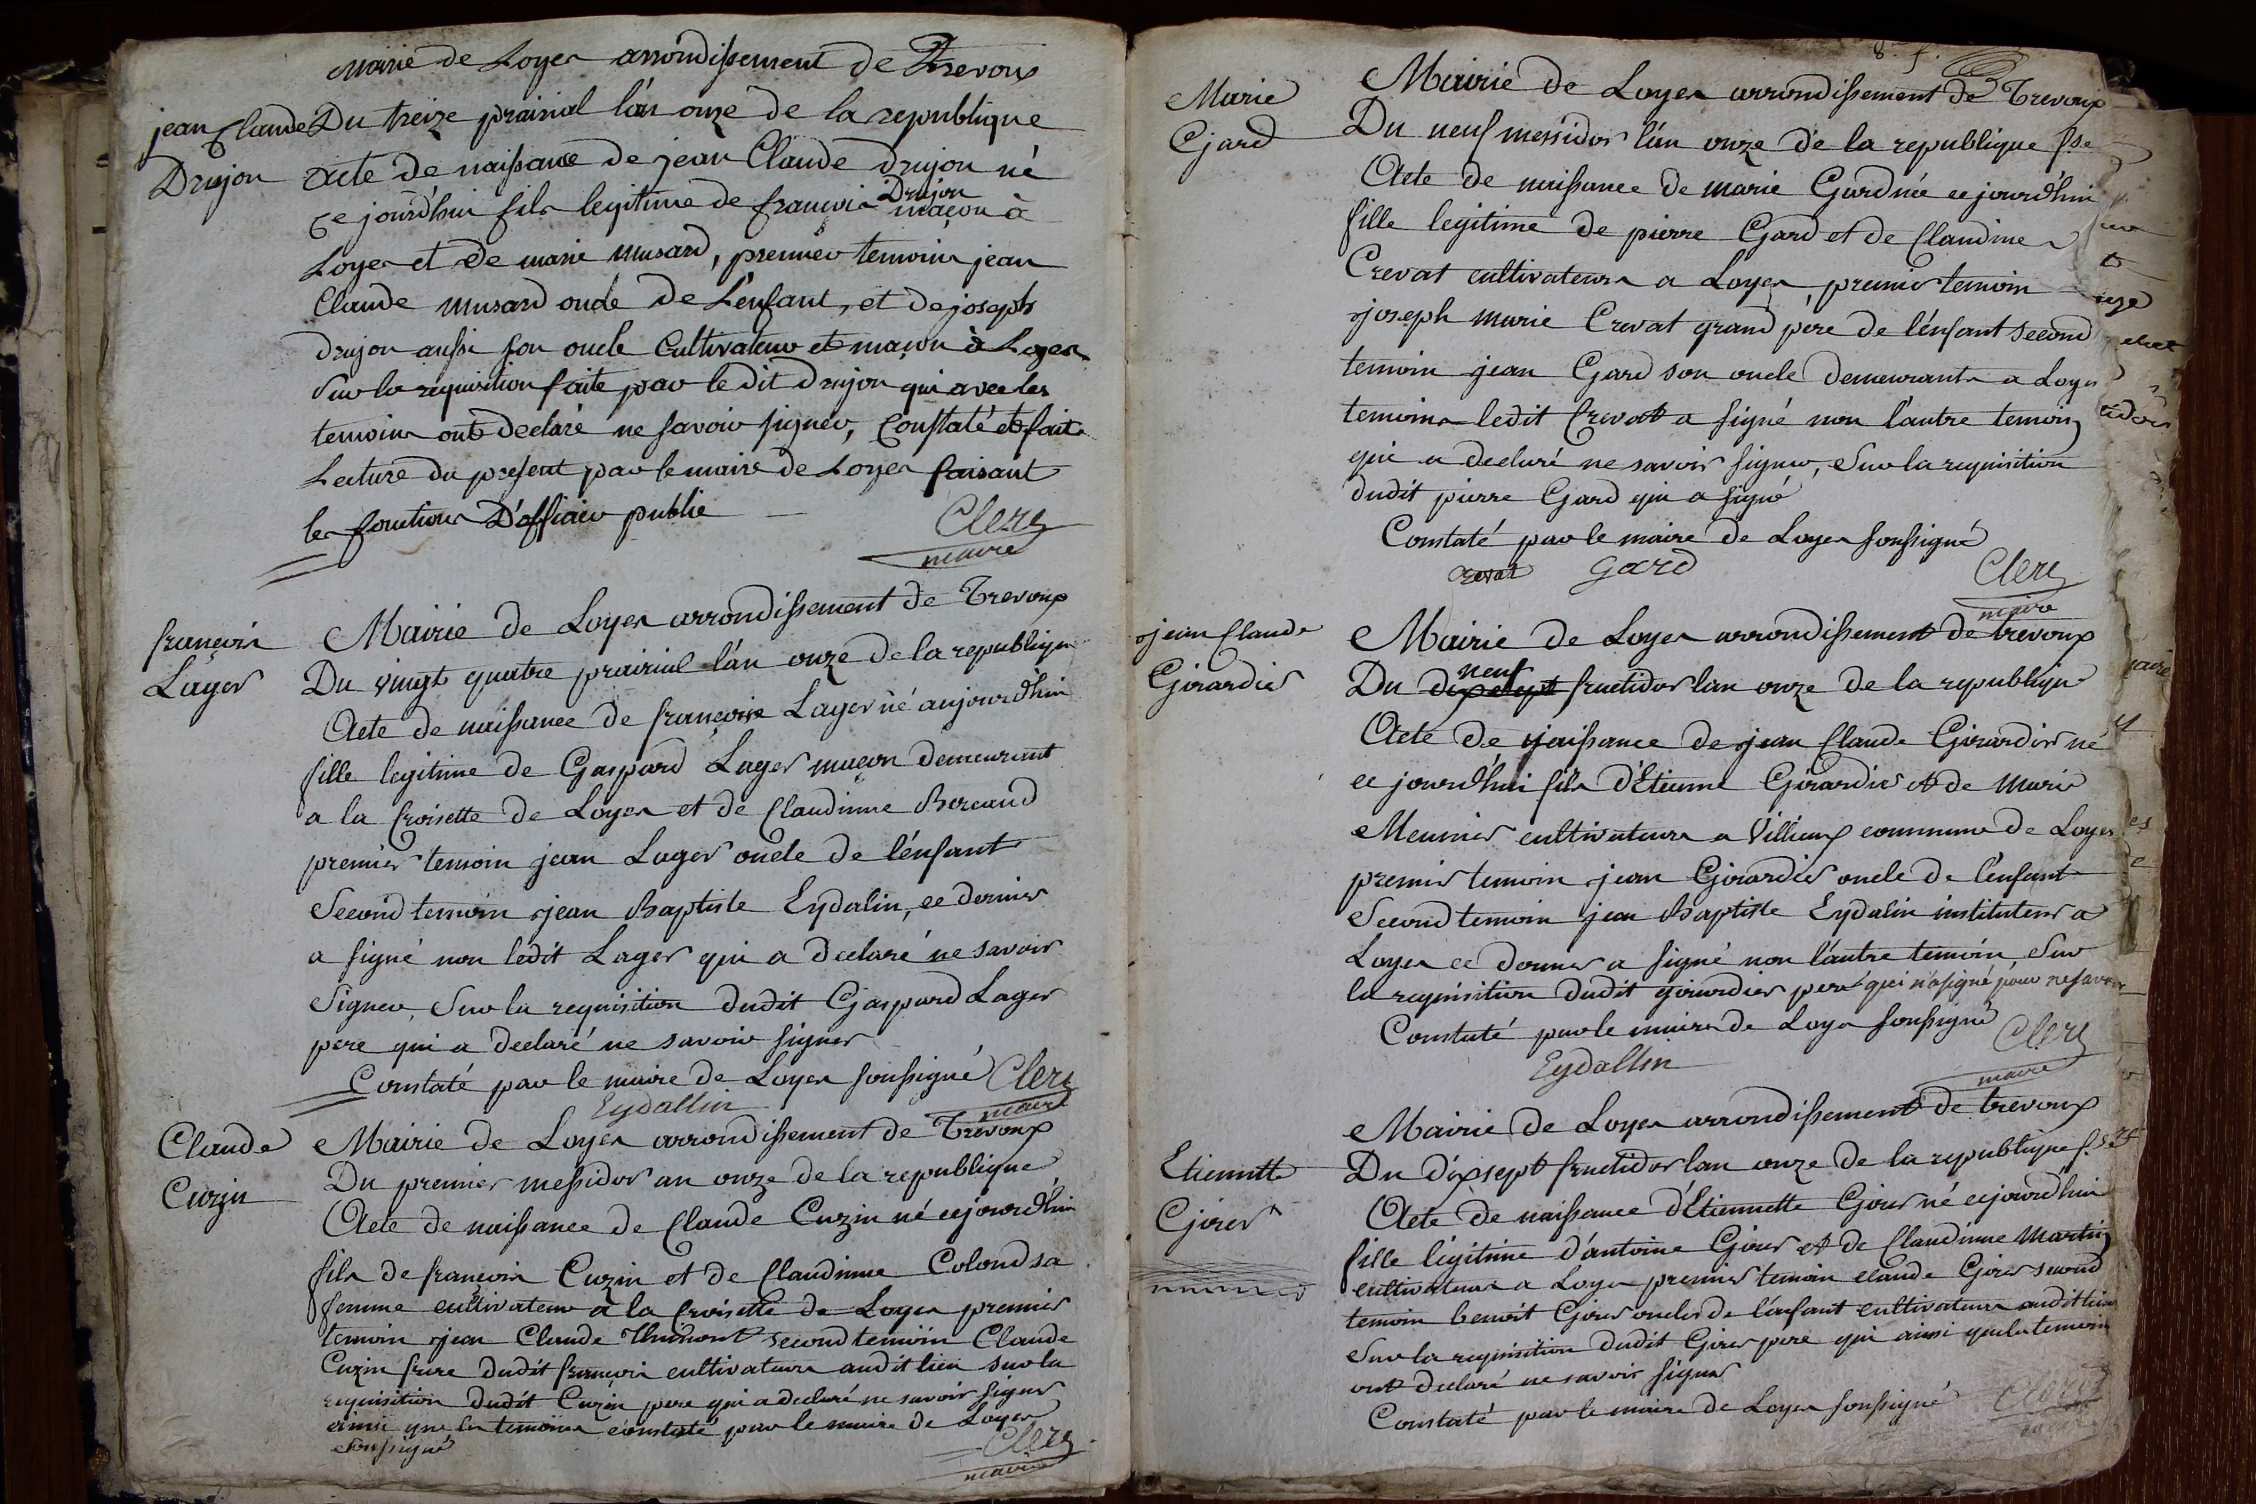 Mairie de Loyes arrondissement de Trevoux
jean Claude
Drujon
Du treize prairial l'an onze de la republique
Acte de naissance de jean Claude drujon né
ce jourd'hui fils legitime de françois Drujon maçon à
Loyes et de marie musard, premier temoins jean
Claude musard oncle de L'enfant, et de joseph
drujon aussi son oncle Cultivateur et maçon à Loyes
Sur la requisition faite par le dit drujon qui avec les
temoins ont declaré ne savoir signer, Constaté et fait
Lecture du present par le maire de Loyes faisant
les fonctions D'officier public
Clerc
maire
françois
Lager
Mairie de Loyes arrondissement de Trevoux
Du vingt quatre prairial l'an onze de la republique
Acte de naissance de françoise Lager né aujourd'hui
fille legitime de Gaspard Lager maçon demeurant
a la Croisette de Loyes et de Claudinne
premier temoin jean Lager oncle de l'énfant
Second temoin jean Baptiste Eydalin, ce dernier
a signé non ledit Lager qui a declaré ne savoir
Signer, Sur la requisition dudit Gaspard Lager
pere qui a declaré ne savoir signer
Constaté par le maire de Loyes soussigné Clerc
Eydallin maire
Claude
Cuzin
Mairie de Loyes arrondissement de Trevoux
Du premier messidor an onze de la republique
Acte de naissance de Claude Cuzin né cejourd'hui
fils de françois Cuzin et de Claudinne Colond sa
femme cultivateurs a la Croisette de Loyes premier
temoin jean Claude second temoin Claude
Cuzin frere dudit françois cultivateurs audit lieu sur la
requisition dudit Cuzin pere qui a declaré ne savoir signer
ainsi que les temoins constaté par le maire de Loyes
soussigné
Clerc
maire
8. f.
Marie
Gard
Mairie de Loyes arrondissement de Trevoux
Du neuf messidor l'an onze de la republique fse
Acte de naissance de marie Gard née ce jourd'hui
fille legitime de pierre Gard et de Claudine
Crevat cultivateurs a Loyes, premier temoin
joseph marie Crevat grand pere de l'énfant second
temoin jean Gard son oncle demeurants a Loyes
temoins ledit Crevat a signé non l'autre temoin
qui a declaré ne savoir signer, Sur la requisition
dudit pierre Gard qui a signé
Constaté par le maire de Loyes soussigné
crevat Gard Clerc
maire
jean Claude
Girardier
Mairie de Loyes arrondissement de trevoux
Du dixsept neuf fructidor lan onze de la republique
Acte de naissance de jean Claude Girardier né
ce jourd'hui fils d'Etienne Girardier et de Marie
Meunier cultivateurs a Villieux commune de Loyes
premier temoin jean Girardier oncle de l'enfant
Second temoin jean Baptiste Eydalin instituteur a
Loyes ce dernier a signé non l'autre temoin, Sur
la requisition dudit girardier pere qui n'a signé pour ne savoir
Constaté par le maire de Loyes soussigné
Eydallin Clerc
maire
Etiennette
Girer
Mairie de Loyes arrondissement de trevoux
Du dixsept fructidor lan onze de la republique fse
Acte de naissance d'Etiennette Girer né cejourd'hui
fille legitime d'antoine Girer et de Claudinne Martin
cultivateurs a Loyes premier temoin claude Girer second
temoin benoit Girer oncles de l'enfant cultivateurs audit lieu
Sur la requisition dudit Girer pere qui ainsi que les temoins
ont declaré ne savoir signer
Constaté par le maire de Loyes soussigné Clerc
maire